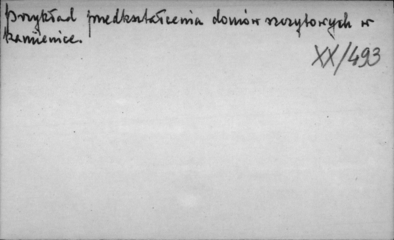 przykład przedkształcenia domów szczytowych w
kamienice.
XX/493